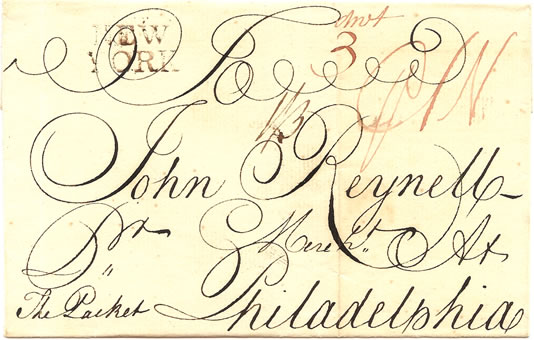 NEW
YORK
dwt
3
To
1/3
John Reynell
Pr
Merch.t At
The Packet Philadelphia